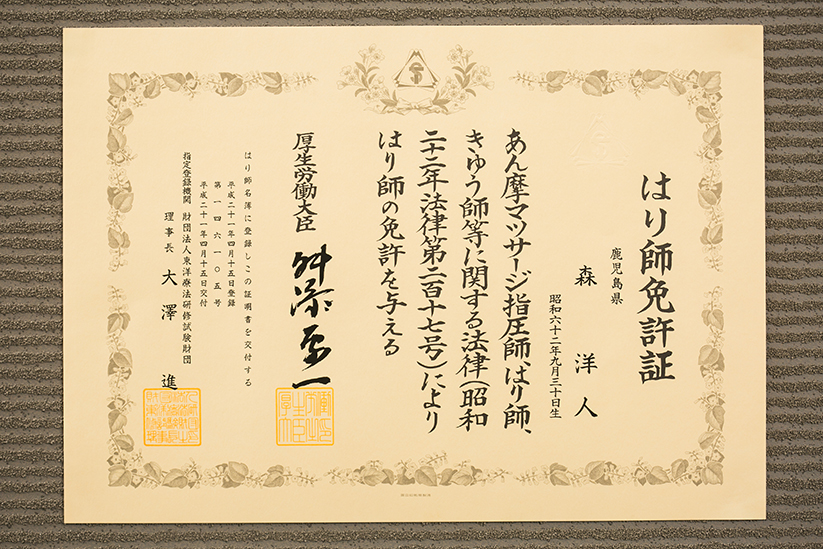 はり師免許証
鹿児島県
森 洋人
昭和六十二年九月三十日生
あん摩マツサージ指圧師、はり師、
きゆう師等に関する法律(昭和
二十二年法律第二百十七号)により
はり師の免許を与える
厚生労働大臣 舛添要一
はり師名簿に登録しこの証明書を交付する
平成二十一年四月十五日登録
第一四六一〇五号
平成二十一年四月十五日交付
指定登録機関 財団法人東洋療法研修試験財団
理事長 大澤 進